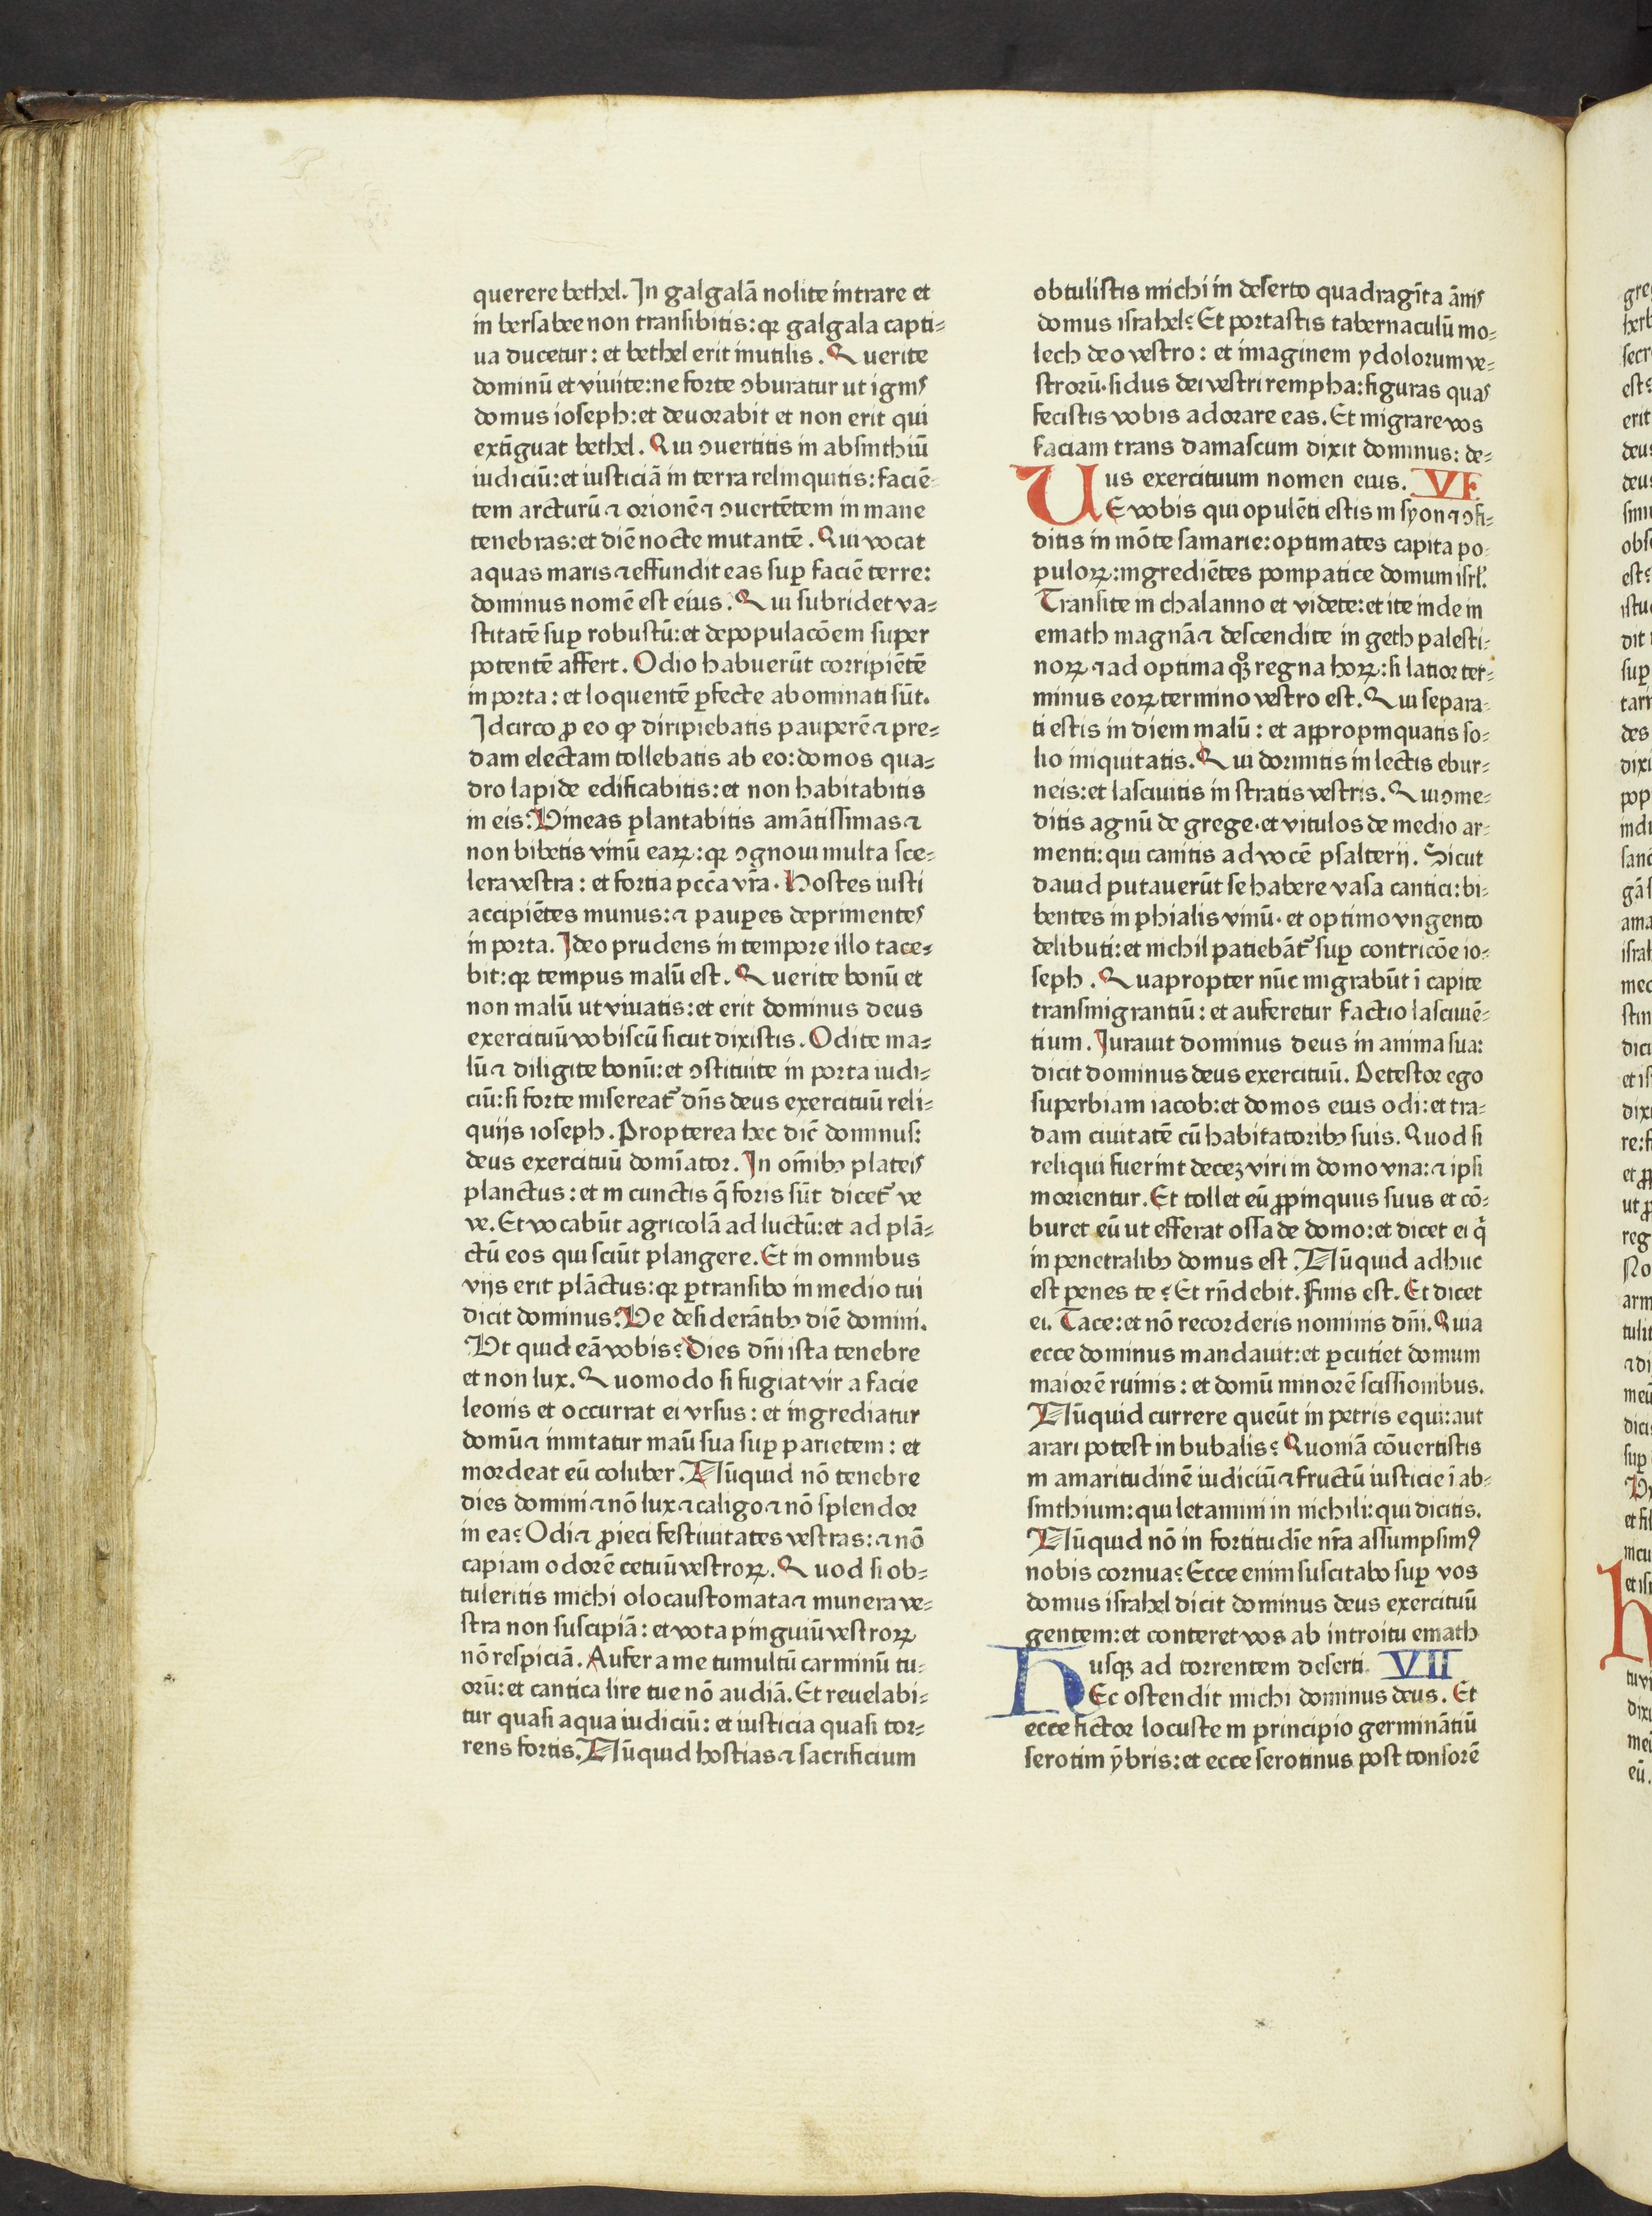 querere bethel. In galgalā nolite intrare et
in bersabee non transibitis: qꝛ galgala capti⸗
ua ducetur: et bethel erit inutilis. Querite
dominū et viuite: ne forte ꝯburatur ut ignis
domus ioseph: et deuorabit et non erit qui
extīguat bethel. Qui ꝯuertitis in absinthiū
iudiciū: et iusticiā in terra relinquitis: faciē⸗
tem arcturū ⁊ orionē ⁊ ꝯuertētem in mane
tenebras: et diē nocte mutantē. Qui vocat
aquas maris ⁊ effundit eas suꝑ faciē terre:
dominus nomē est eius. Qui subridet va⸗
stitatē suꝑ robustū: et depopulacōem super
potentē affert. Odio habuerūt corripiētē
in porta: et loquentē ꝑfecte abominati sūt.
Idcirco ꝓ eo ꝙ diripiebatis pauperē ⁊ pre⸗
dam electam tollebatis ab eo: domos qua⸗
dro lapide edificabitis: et non habitabitis
in eis. Vineas plantabitis amātissimas ⁊
non bibetis vinū eaꝝ: qꝛ ꝯgnoui multa sce⸗
lera vestra: et fortia pccā vr̄a. Hostes iusti
accipiētes munus: ⁊ pauꝑes deprimentes
in porta. Ideo prudens in tempore illo tace⸗
bit: qꝛ tempus malū est. Querite bonū et
non malū ut viuatis: et erit dominus deus
exercituū vobiscū sicut dixistis. Odite ma⸗
lū ⁊ diligite bonū: et ꝯstituite in porta iudi⸗
ciū: si forte misereat᷑ dn̄s deus exercituū reli⸗
quijs ioseph. Propterea hec dic̄ dominus:
deus exercituū domīator. In om̄ibꝫ plateis
planctus: et in cunctis q̄ foris sūt dicet᷑ ve
ve. Et vocabūt agricolā ad luctū: et ad plā⸗
ctū eos qui sciūt plangere. Et in omnibus
vijs erit plāctus: qꝛ ꝑtransibo in medio tui
dicit dominus. Ve desiderātibꝫ diē domini.
Vt quid eā vobis? Dies dn̄i ista tenebre
et non lux. Quomodo si fugiat vir a facie
leonis et occurrat ei vrsus: et ingrediatur
domū ⁊ innitatur maū sua suꝑ parietem: et
mordeat eū coluber. Nūquid nō tenebre
dies domini ⁊ nō lux ⁊ caligo ⁊ nō splendor
in ea? Odi ⁊ ꝓieci festiuitates vestras: ⁊ nō
capiam odorē cetuū vestroꝝ. Quod si ob⸗
tuleritis michi olocaustomata ⁊ munera ve⸗
stra non suscipiā: et vota pinguiū vestroꝝ
nō respiciā. Aufer a me tumultū carminū tu⸗
orū: et cantica lire tue nō audiā. Et reuelabi⸗
tur quasi aqua iudiciū: et iusticia quasi tor⸗
rens fortis. Nūquid hostias ⁊ sacrificium
obtulistis michi in deserto quadragīta ānis
domus israhel? Et portastis tabernaculū mo⸗
lech deo vestro: et imaginem ydolorum ve⸗
strorū. sidus dei vestri rempha: figuras quas
fecistis vobis adorare eas. Et migrare vos
faciam trans damascum dixit dominus: de⸗
us exercituum nomen eius. VI
UE vobis qui opulēti estis in syon ⁊ ꝯfi⸗
ditis in mōte samarie: optimates capita po⸗
puloꝝ: ingrediētes pompatice domum isrl̄.
Transite in chalanno et videte: et ite inde in
emath magnā ⁊ descendite in geth palesti⸗
noꝝ ⁊ ad optima qꝫ regna hoꝝ: si latior ter⸗
minus eoꝝ termino vestro est. Qui separa⸗
ti estis in diem malū: et aꝓpropinquatis so⸗
lio iniquitatis. Qui dormitis in lectis ebur⸗
neis: et lasciuitis in stratis vestris. Qui ꝯme⸗
ditis agnū de grege. et vitulos de medio ar⸗
menti: qui canitis ad vocē psalterij. Sicut
dauid putauerūt se habere vasa cantici: bi⸗
bentes in phialis vinū. et optimo vngento
delibuti: et nichil patiebāt᷑ suꝑ contricōe io⸗
seph. Quapropter nūc migrabūt ī capite
transmigrantiū: et auferetur factio lasciuiē⸗
tium. Iurauit dominus deus in anima sua:
dicit dominus deus exercituū. Detestor ego
superbiam iacob: et domos eius odi: et tra⸗
dam ciuitatē cū habitatoribꝫ suis. Quod si
reliqui fuerint deceꝫ viri in domo vna: ⁊ ipsi
morientur. Et tollet eū ꝓpinquus suus et cō⸗
buret eū ut efferat ossa de domo: et dicet ei qͥ
in penetralibꝫ domus est. Nūquid adhuc
est penes te? Et rn̄debit. Finis est. Et dicet
ei. Tace: et nō recorderis nominis dn̄i. Quia
ecce dominus mandauit: et ꝑcutiet domum
maiorē ruinis: et domū minorē scissionibus.
Nūquid currere queūt in petris equi: aut
arari potest in bubalis? Quoniā cōuertistis
in amaritudinē iudiciū ⁊ fructū iusticie ī ab⸗
sinthium: qui letamini in nichili: qui dicitis.
Nūquid nō in fortitudīe nr̄a assumpsimꝰ
nobis cornua? Ecce enim suscitabo suꝑ vos
domus israhel dicit dominus deus exercituū
gentem: et conteret vos ab introitu emath
usqꝫ ad torrentem deserti. VII
HEc ostendit michi dominus deus. Et
ecce fictor locuste in principio germināntiū
serotini ȳbris: et ecce serotinus post tonsorē